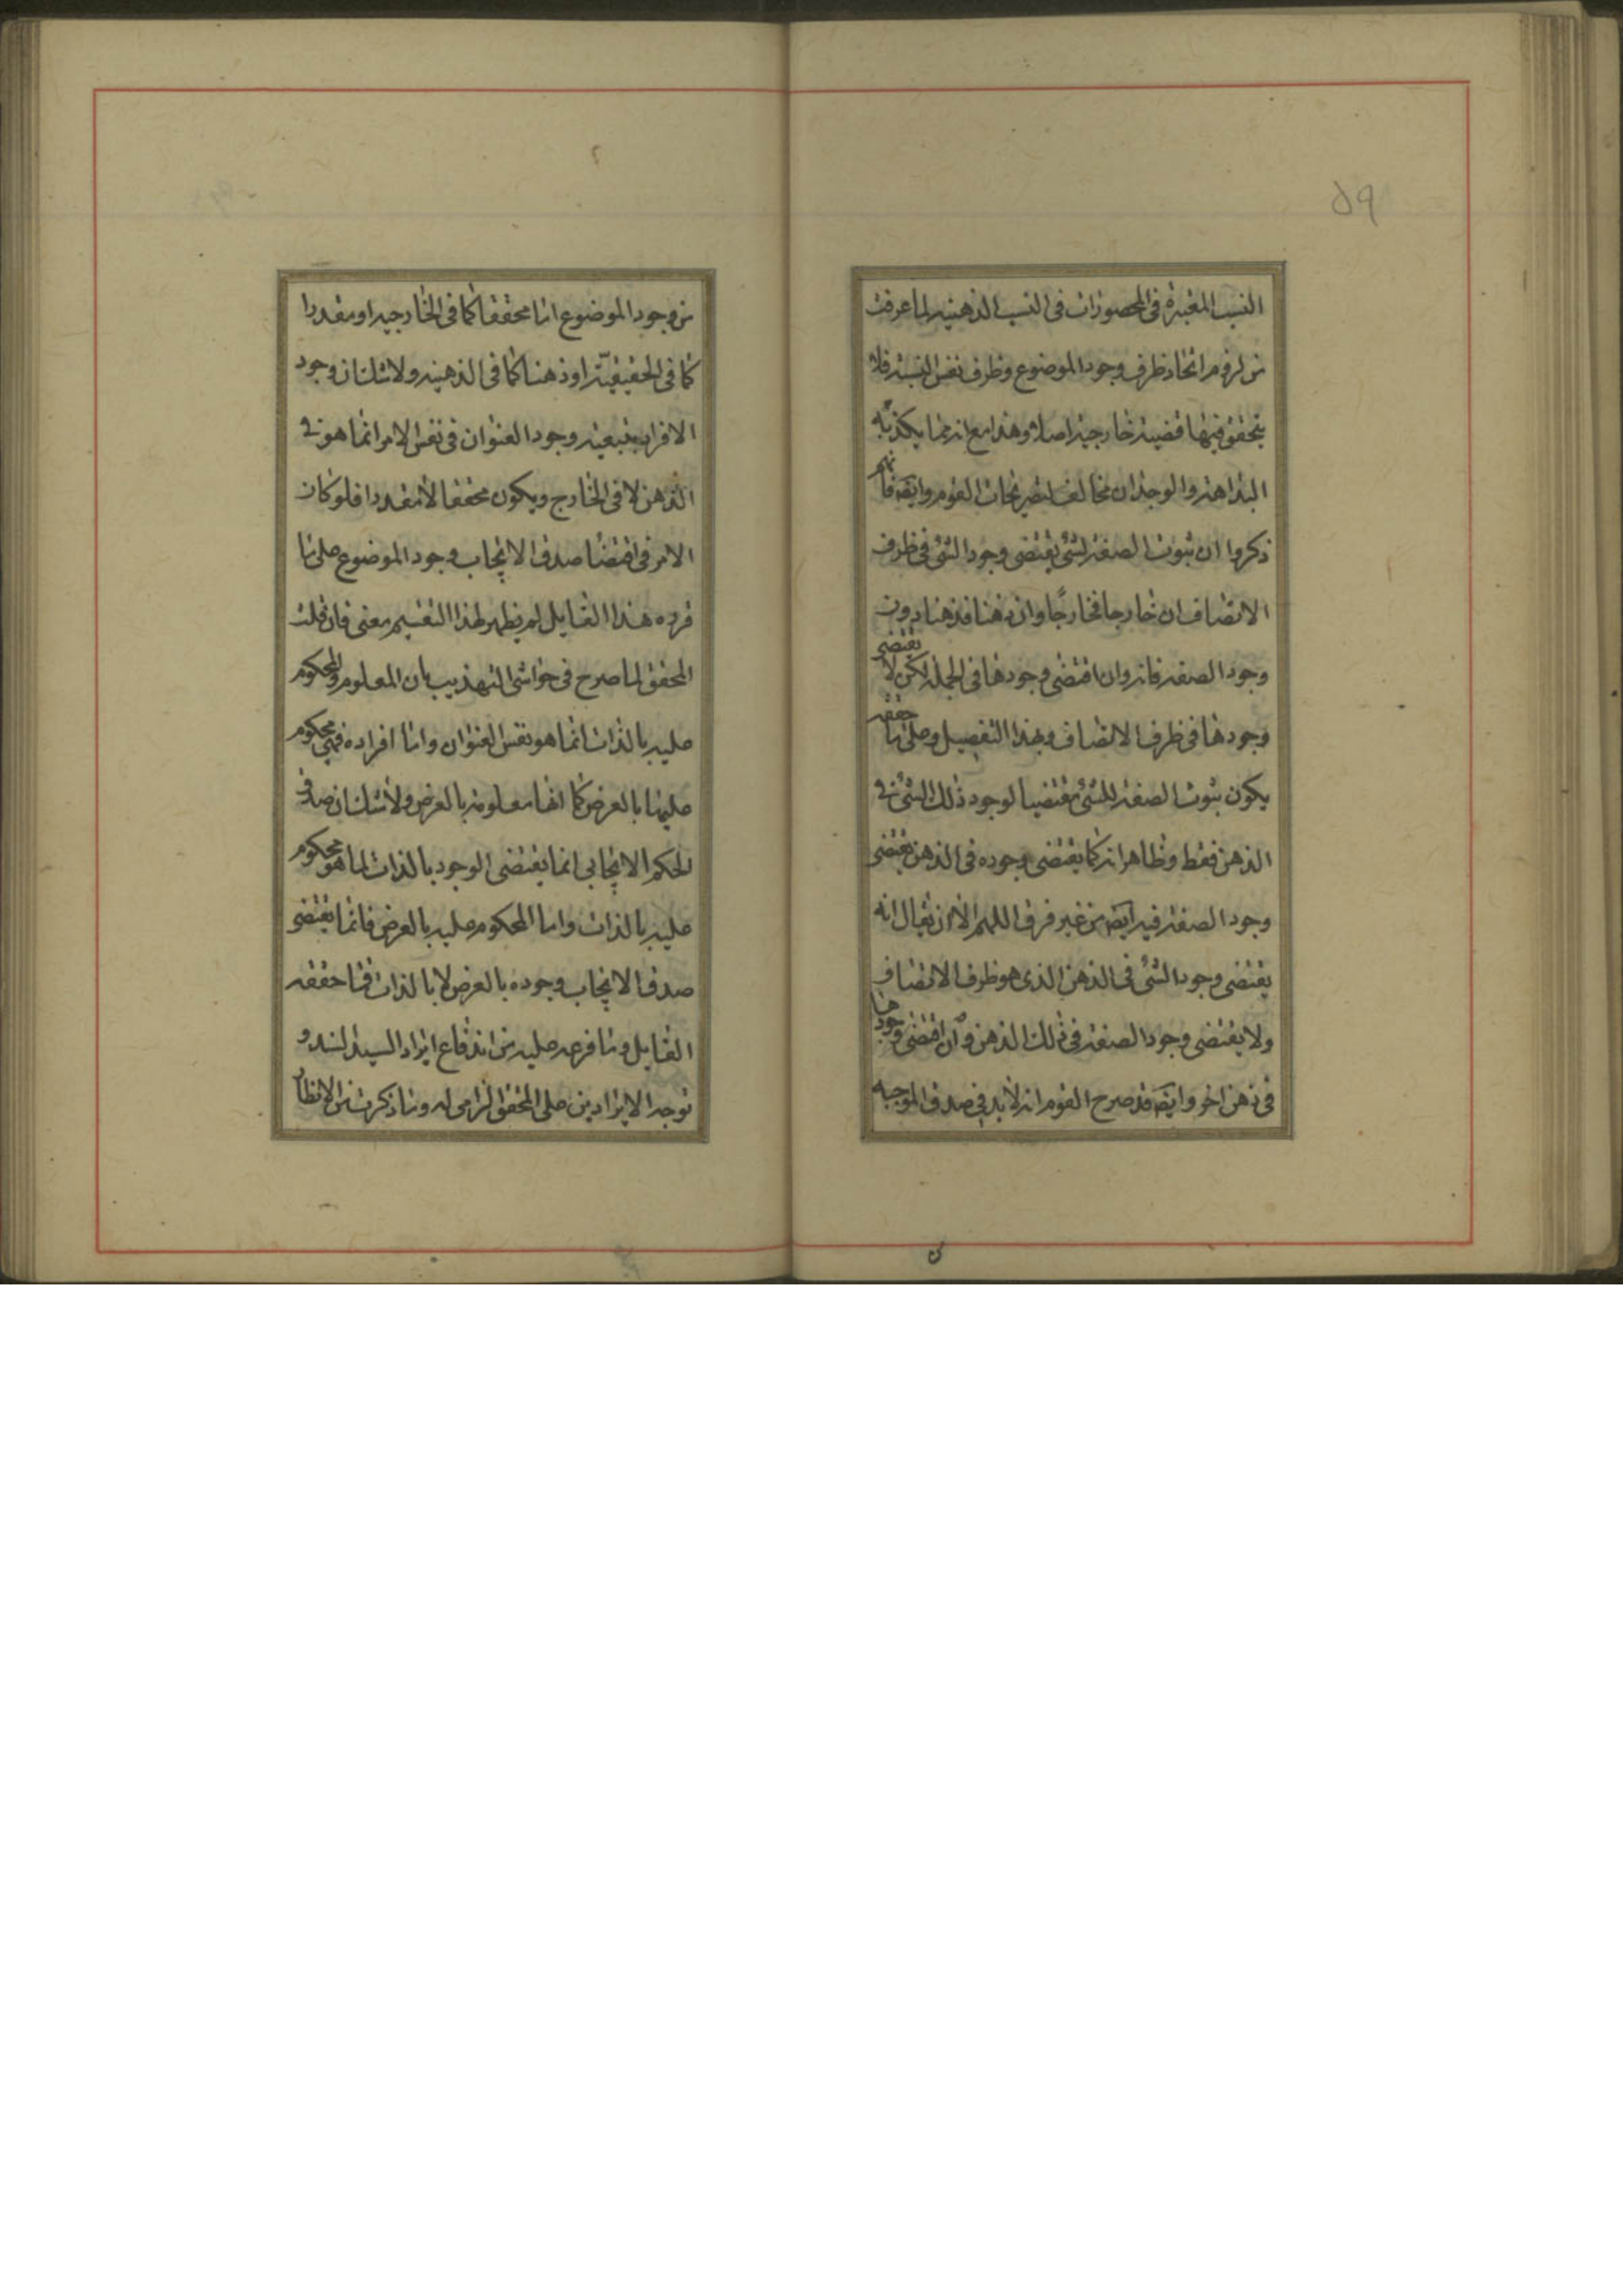 ٥٩
النسب المعتبرة فى المحصورات فى النسب الذهنيه لما عرفت
من لزوم اتحاد ظرف وجود الموضوع وظرف نفس النسبة فلا
يتحقق فيها قضية خارجية اصلا وهذا مع انه مما يكذبه
البداهة والوجدان مخالف لتصريحات القوم وايضا فانهم
ذكروا ان ثبوت الصفة لشئ يقتضى وجود الشئ فى ظرف
الاتصاف ان خارجا فخارجًا وان ذهنا فذهنا دون
وجود الصفة فانه وان اقتضى وجودها فى الجملة لكن لا يقتضى
وجودها فى ظرف الاتصاف وبهذا التفصيل وعلى ما حققه
يكون ثبوت الصفة للشئ مقتضيا لوجود ذلك الشئ فى
الذهن فقط وظاهر انه كما يقتضى وجوده فى الذهن يقتضى
وجود الصفة فيه ايضا من غير فرق اللهم الا ان يقال انه
يقتضى وجود الشئ فى الذهن الذى هو ظرف الاتصاف
ولا يقتضى وجود الصفة فى ذلك الذهن وان اقتضى وجودها
فى ذهن اخر وايضا قد صرح القوم انه لا بد فى صدق الموجبه
من وجود الموضوع اما محققا كما فى الخارجيه او مقدرا
كما فى الحقيقيّة او ذهنا كما فى الذهنيه ولا شك ان وجود
الافراد بتبعية وجود العنوان فى نفس الامر انما هو فى
الذهن لا فى الخارج ويكون محققا لا مقدرا فلو كان
الامر فى اقتضاء صدق الايجاب وجود الموضوع على ما
قرره هذا القايل لم يظهر لهذا التقسيم معنى فان قلت
المحقق لما صرح فى حواشى التهذيب بان المعلوم والمحكوم
عليه بالذات انما هو نفس العنوان واما افراده فهى محكوم
عليها بالعرض كما انها معلومة بالعرض ولا شك ان صدق
الحكم الايجابى انما يقتضى الوجود بالذات لما هو محكوم
عليه بالذات واما المحكوم عليه بالعرض فانما يقتضى
صدق الايجاب وجوده بالعرض لا بالذات فما حققه
القايل وما فرعه عليه من اندفاع ايراد السيد السند و
توجه الايرادين على المحقق الزامى له وما ذكرت من الانظار